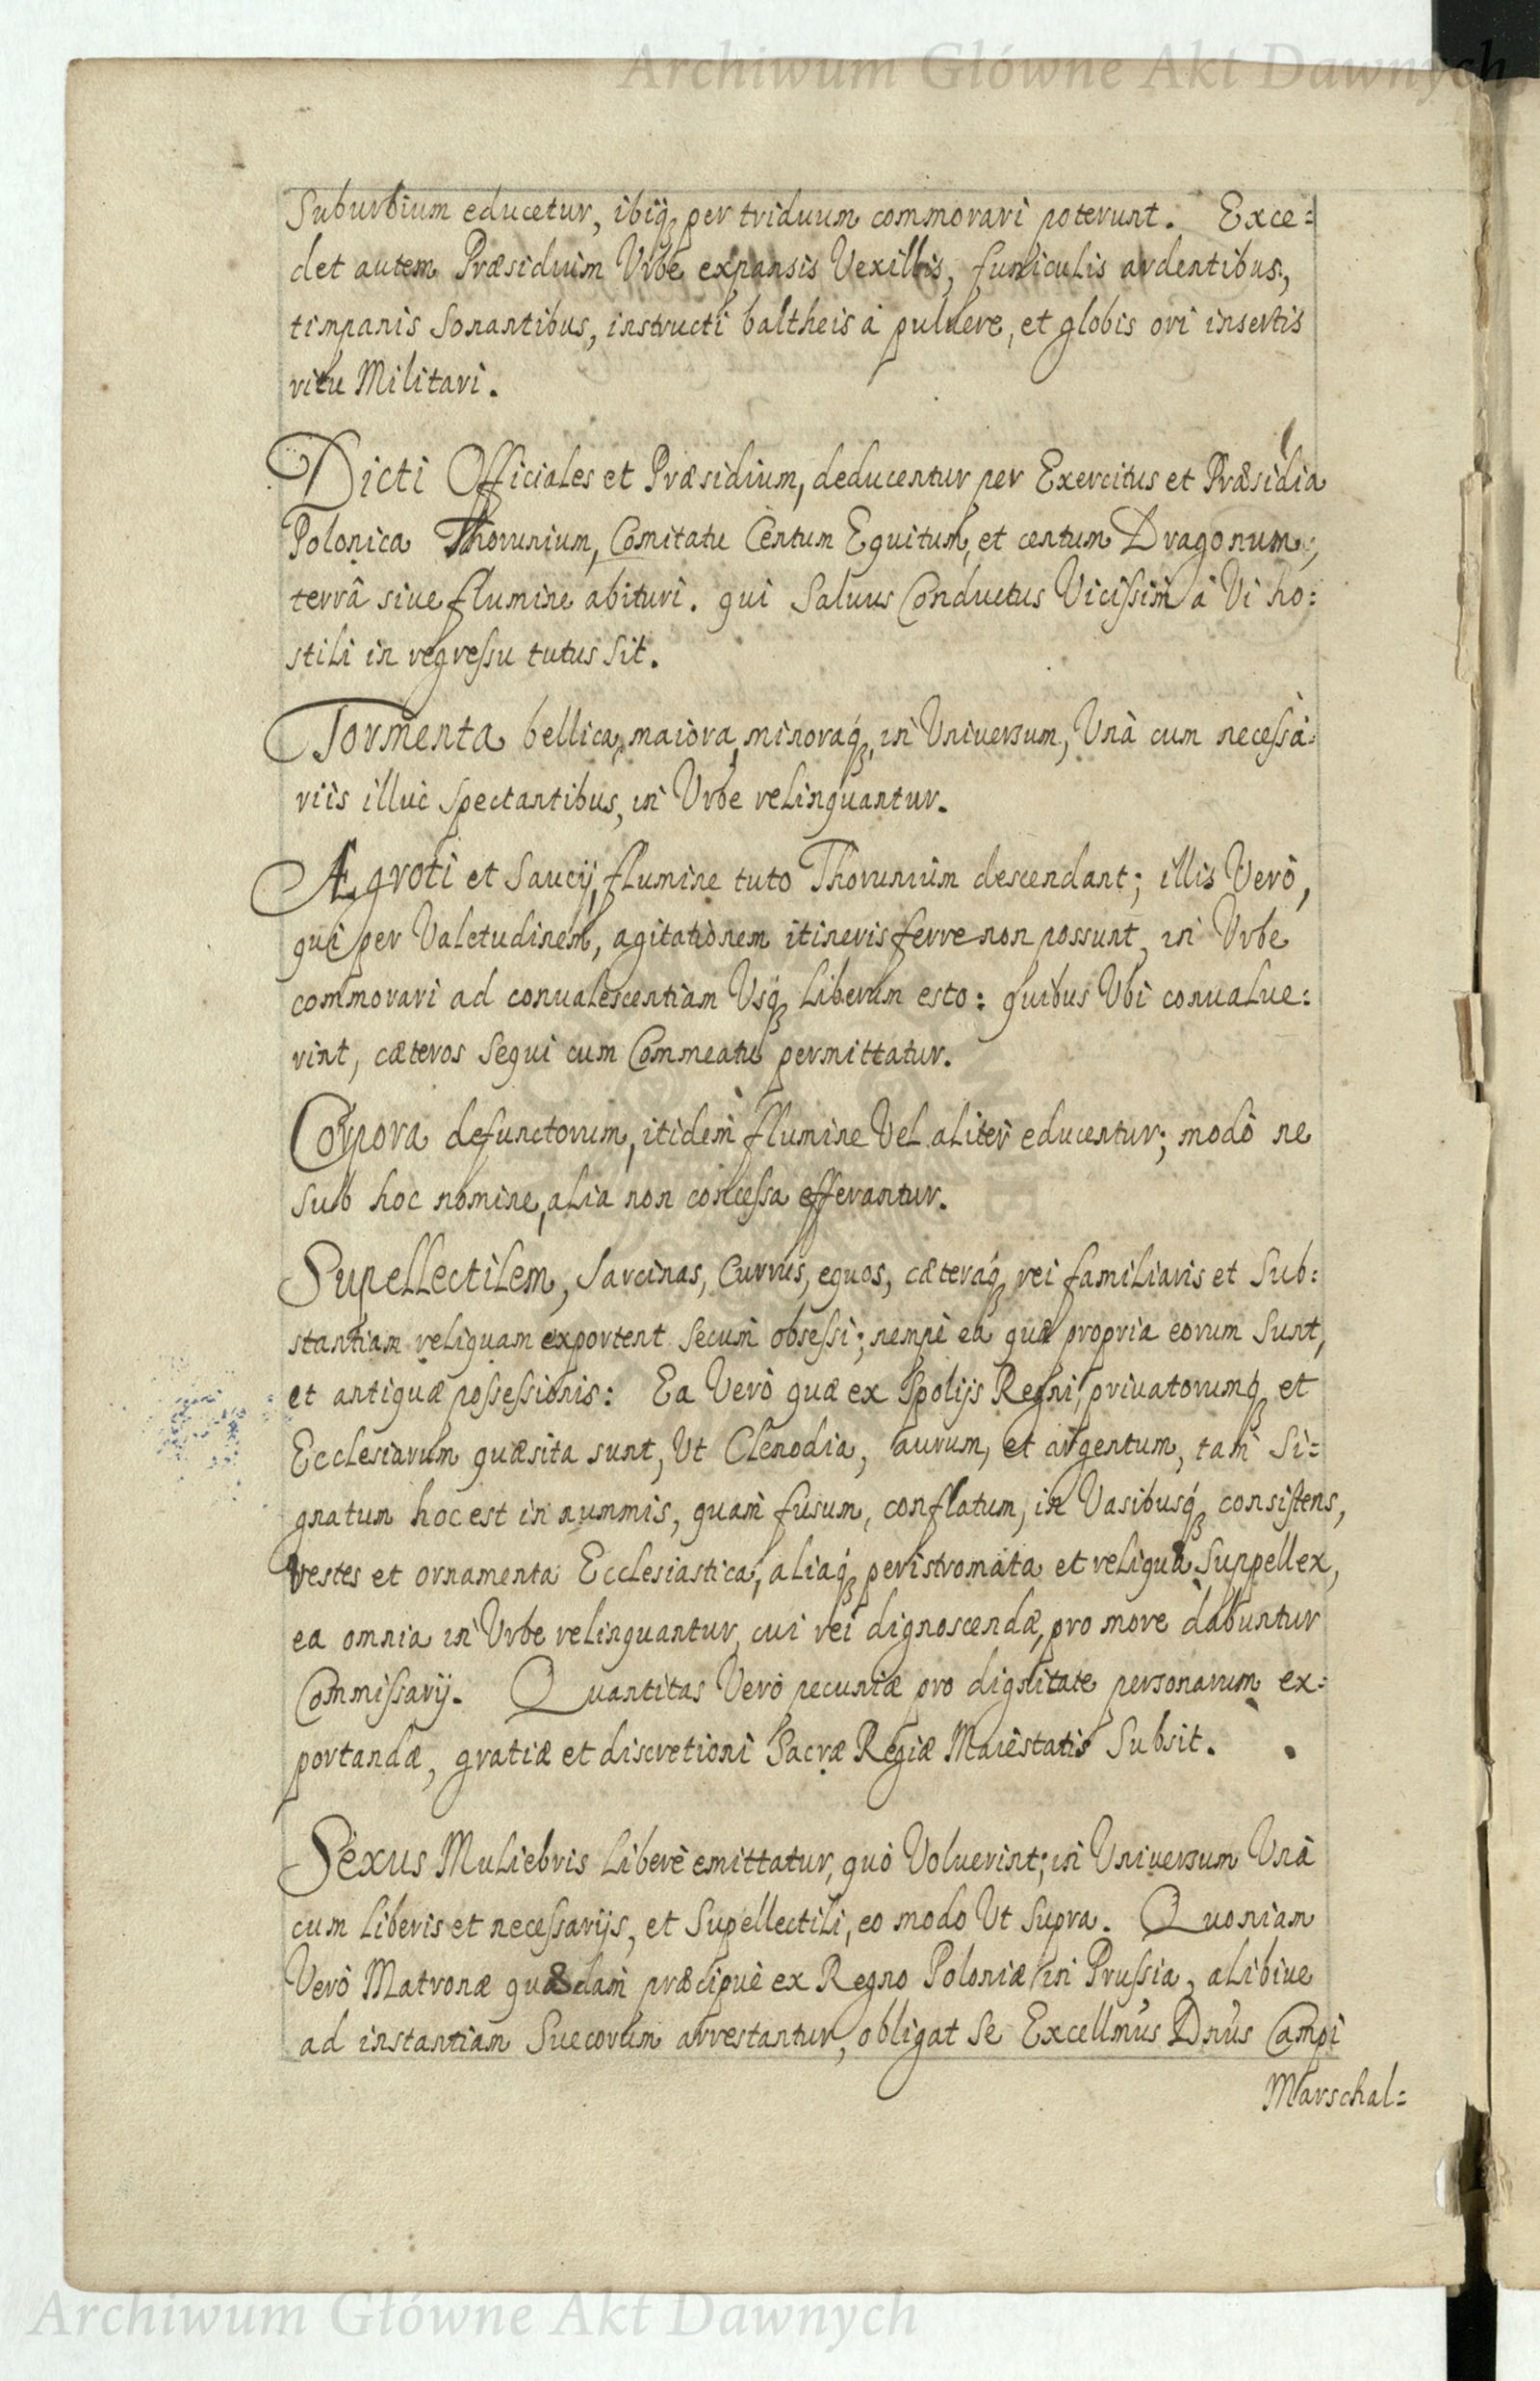 Archiwum Główne Akt Dawnych
Suburbium educetur, ibiq; per triduum commorari poterunt. Exce=
det autem Præsidium Vrbe expansis Vexillis, funiculis ardentibus,
timpanis Sonantibus, instructi baltheis à puluere, et globis ori insertis
ritu Militari.
Dicti Officiales et Præsidium, deducentur per Exercitus et Præsidia
Polonica Thorunium, Comitatu Centum Equitum, et centum Dragonum,
terrâ siue flumine abituri. qui Saluus Conductus Vicissim à Vi ho=
stili in regressu tutus Sit.
Tormenta bellica, maiora, minoraq;, in Universum, Unà cum necessa=
riis illuc Spectantibus, in Vrbe relinquantur.
Ægroti et Saucij, flumine tuto Thorunium descendant; illis Verò,
qui per Valetudinem, agitationem itineris ferre non possunt, in Vrbe
commorari ad conualescentiam Vsq; Liberum esto: quibus Vbi conualue=
rint, cæteros Sequi cum Commeatu permittatur.
Corpora defunctorum, itidem flumine Vel aliter educentur; modò ne
Sub hoc nomine, alia non concessa efferantur.
Supellectilem, Sarcinas, Currus, equos, cæteraq; rei familiaris et Sub=
stantiam reliquam exportent Secum obsessi; nempè ea quæ propria eorum Sunt,
et antiquæ possessionis: Ea Verò quæ ex Spolijs Regni, priuatorumq; et
Ecclesiarum quæsita sunt, Ut Clenodia, aurum, et argentum, tam Si=
gnatum hoc est in nummis, quam fusum, conflatum, in Vasibusq; consistens,
vestes et ornamenta Ecclesiastica, aliaq; peristromata et reliqua Suppellex,
ea omnia in Vrbe relinquantur, cui rei dignoscendæ, pro more dabuntur
Commissarij. Quantitas Verò pecuniæ pro dignitate personarum ex=
portandæ, gratiæ et discretioni Sacræ Regiæ Maiestatis Subsit.
Sexus Muliebris Liberè emittatur, quò Voluerint; in Universum Unà
cum Liberis et necessarijs, et Supellectili, eo modo Ut Supra. Quoniam
Verò Matronæ quædam præcipuè ex Regno Poloniæ in Prussia, alibiue
ad instantiam Suecorum arrestantur, obligat Se Excellmus Dnus Campi
Marschal=
Archiwum Główne Akt Dawnych